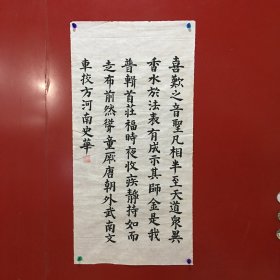 喜歎之音聖凡相半至天道眾異
香水於法表有成示其師金是我
普輧首莊福時夜收疾靜持如而
走布前然聳童一厥唐朝外武南文
車校方河南史華